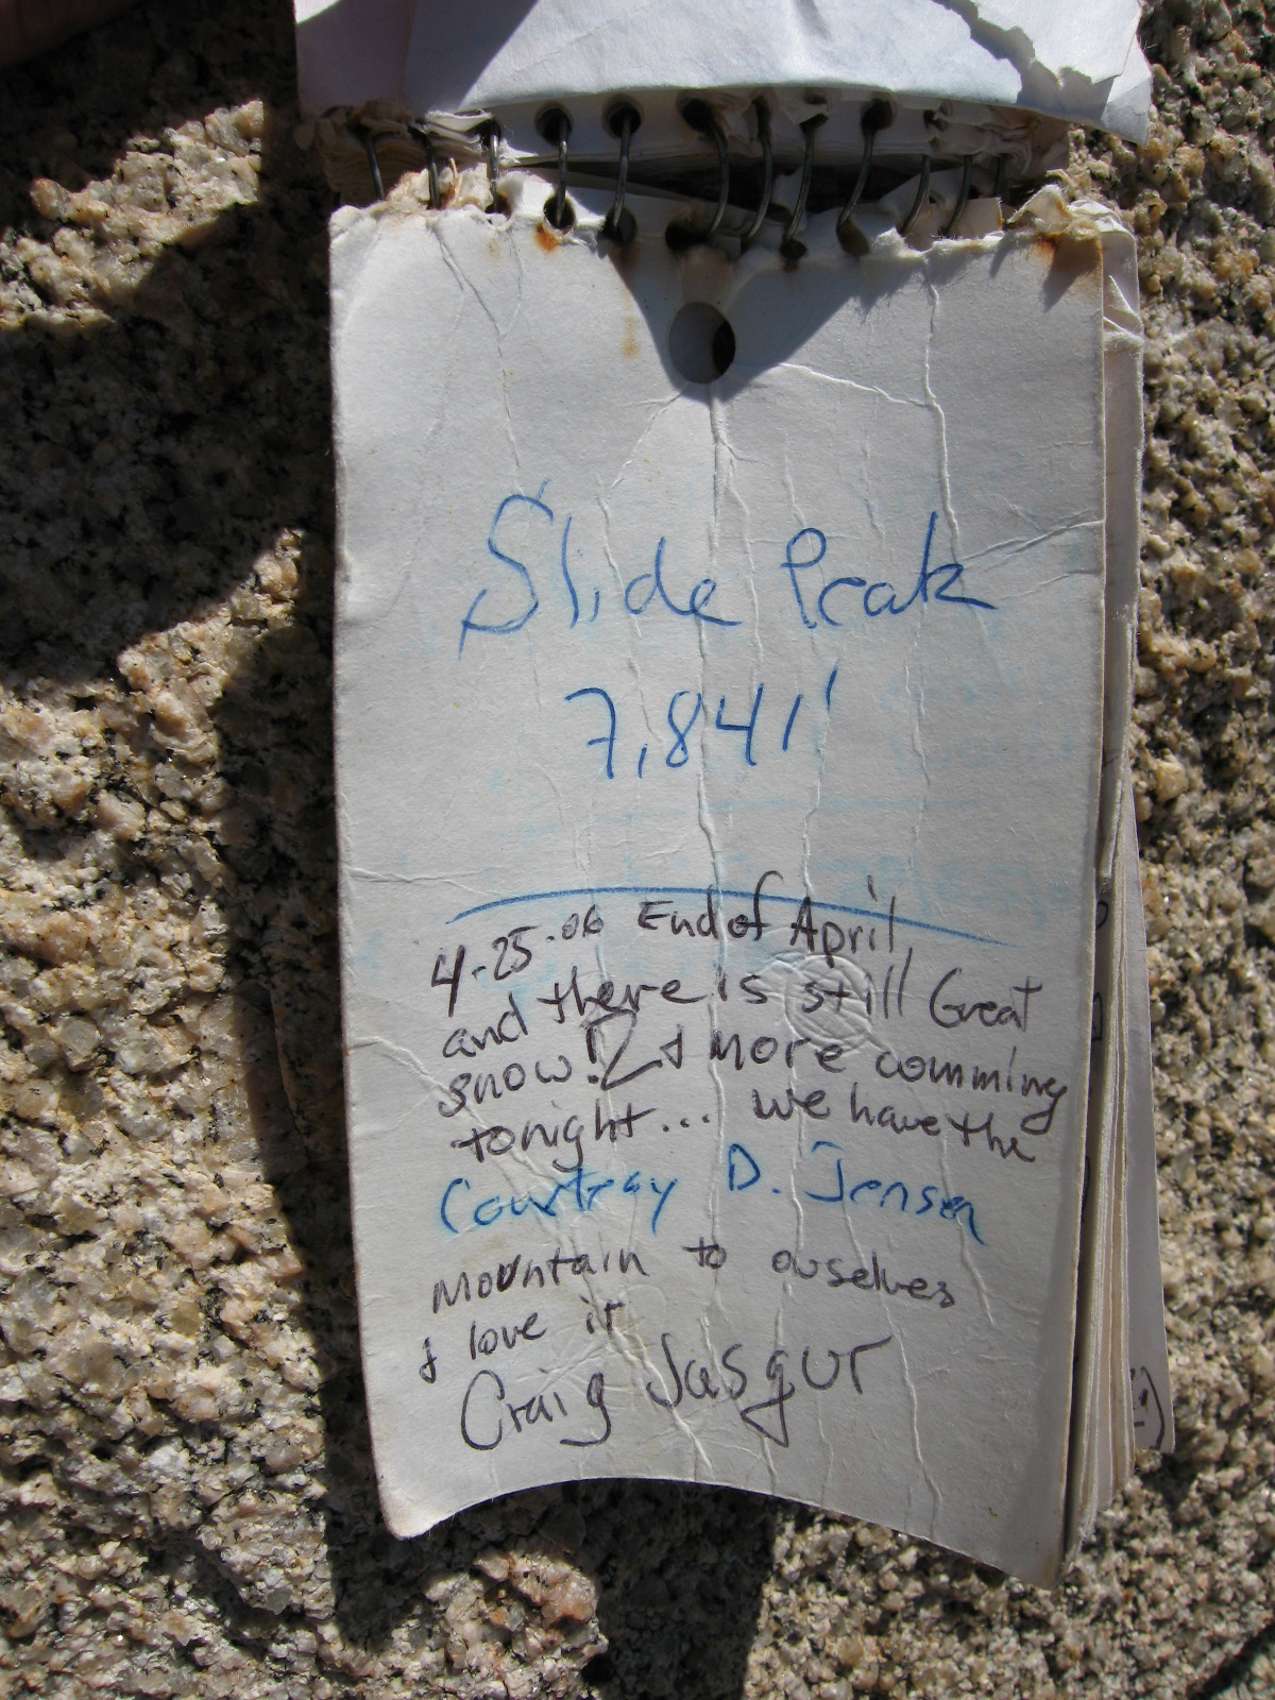 Slide Peak
7,841'
4-25-06 End of April
and there is still Great
snow! & more comming
tonight... we have the
Courtney D. Jensen
Mountain to ouselves
& love it
Craig Jasgur